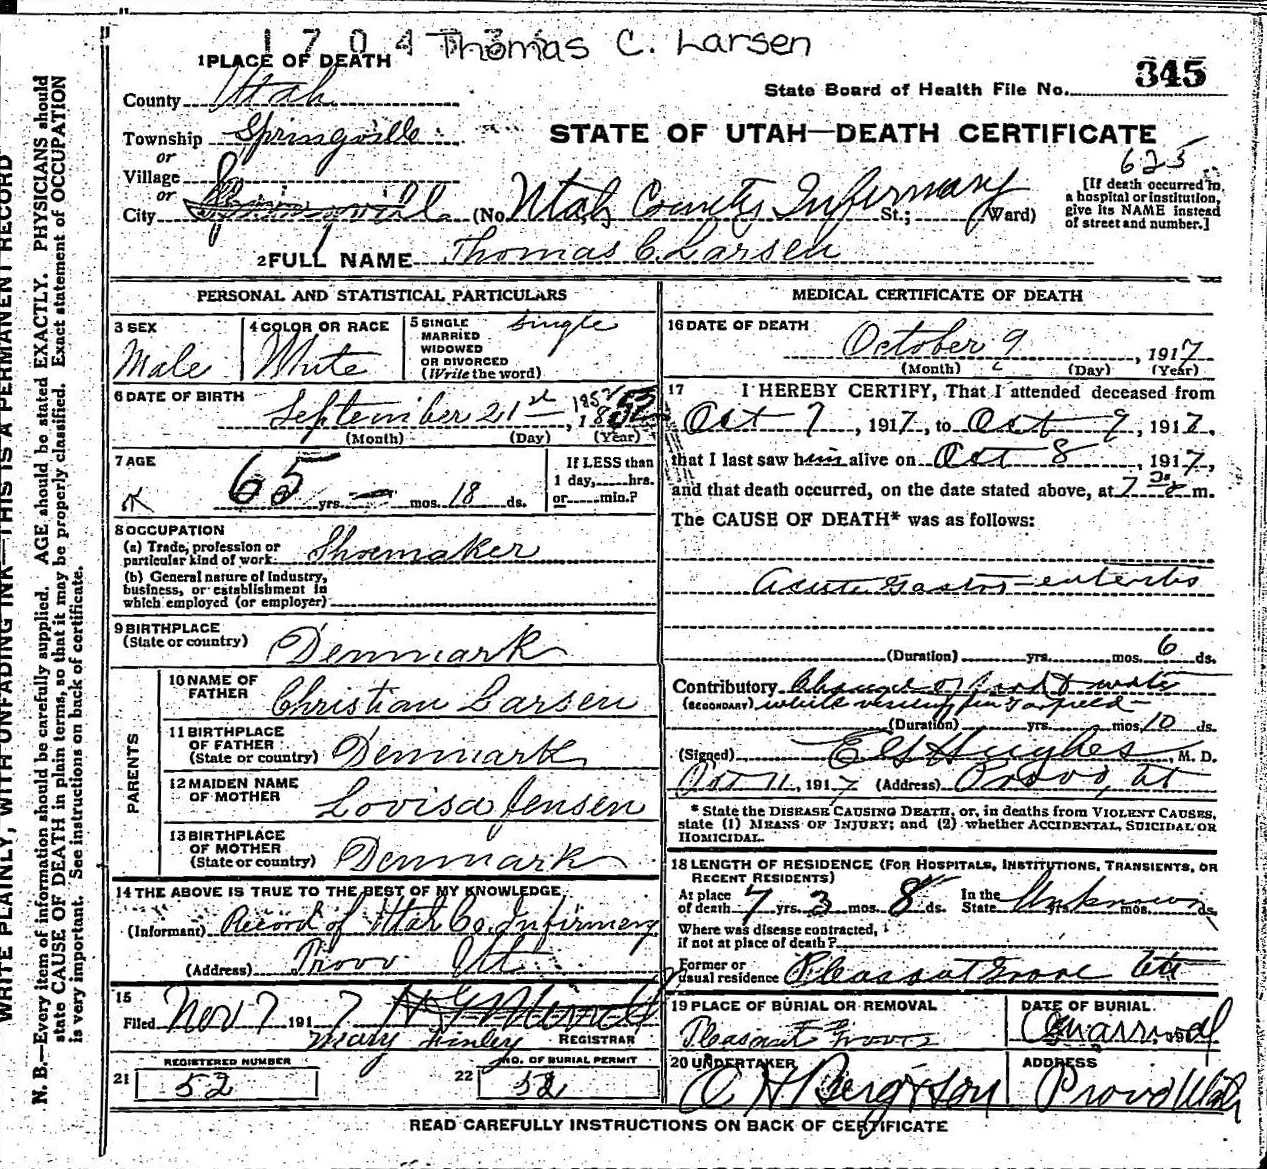 1 7 0 4 Thomas C. Larsen
1 PLACE OF DEATH
State Board of Health File No. 345
County Utah
STATE OF UTAH—DEATH CERTIFICATE
Township Springville
or
Village
or
City (No. Utah County Infirmary St.; Ward)
625
[If death occurred in a hospital or institution, give its NAME instead of street and number.]
2 FULL NAME Thomas C. Larsen
PERSONAL AND STATISTICAL PARTICULARS
3 SEX
Male
4 COLOR OR RACE
White
5 SINGLE MARRIED WIDOWED OR DIVORCED (Write the word)
Single
6 DATE OF BIRTH
September 21st, 1852
(Month) (Day) (Year)
7 AGE
65 yrs. — mos. 18 ds.
If LESS than 1 day, hrs. or min.?
8 OCCUPATION
(a) Trade, profession or particular kind of work Shoemaker
(b) General nature of industry, business, or establishment in which employed (or employer)
9 BIRTHPLACE
(State or country)
Denmark
PARENTS
10 NAME OF FATHER
Christian Larsen
11 BIRTHPLACE OF FATHER (State or country)
Denmark
12 MAIDEN NAME OF MOTHER
Lovisa Jensen
13 BIRTHPLACE OF MOTHER (State or country)
Denmark
14 THE ABOVE IS TRUE TO THE BEST OF MY KNOWLEDGE
(Informant) Record of Utah Co. Infirmary
(Address) Provo Ut
15
Filed Nov 7 1917
Mary Finley REGISTRAR
REGISTERED NUMBER
21 52
NO. OF BURIAL PERMIT
22 52
MEDICAL CERTIFICATE OF DEATH
16 DATE OF DEATH
October 9, 1917
(Month) (Day) (Year)
17 I HEREBY CERTIFY, That I attended deceased from
Oct 7, 1917, to Oct 9, 1917,
that I last saw him alive on Oct 8, 1917,
and that death occurred, on the date stated above, at 7 30 m.
The CAUSE OF DEATH* was as follows:
Acute Gastro-enteritis
(Duration) yrs. mos. 6 ds.
Contributory Change of food & water
(SECONDARY) while visiting in
(Duration) yrs. mos. 10 ds.
(Signed) Hughes, M. D.
Oct 11, 1917 (Address) Provo, Ut
* State the DISEASE CAUSING DEATH, or, in deaths from VIOLENT CAUSES, state (1) MEANS OF INJURY; and (2) whether ACCIDENTAL, SUICIDAL OR HOMICIDAL.
18 LENGTH OF RESIDENCE (FOR HOSPITALS, INSTITUTIONS, TRANSIENTS, OR RECENT RESIDENTS)
At place of death 7 yrs. 3 mos. 8 ds. In the State Unknown yrs. mos. ds.
Where was disease contracted, if not at place of death?
Former or usual residence Pleasant Grove Ut
19 PLACE OF BURIAL OR REMOVAL
Pleasant Grove
DATE OF BURIAL
20 UNDERTAKER
ADDRESS
Provo Utah
READ CAREFULLY INSTRUCTIONS ON BACK OF CERTIFICATE
WRITE PLAINLY, WITH UNFADING INK—THIS IS A PERMANENT RECORD
N. B.—Every item of information should be carefully supplied. AGE should be stated EXACTLY. PHYSICIANS should
state CAUSE OF DEATH in plain terms, so that it may be properly classified. Exact statement of OCCUPATION
is very important. See instructions on back of certificate.